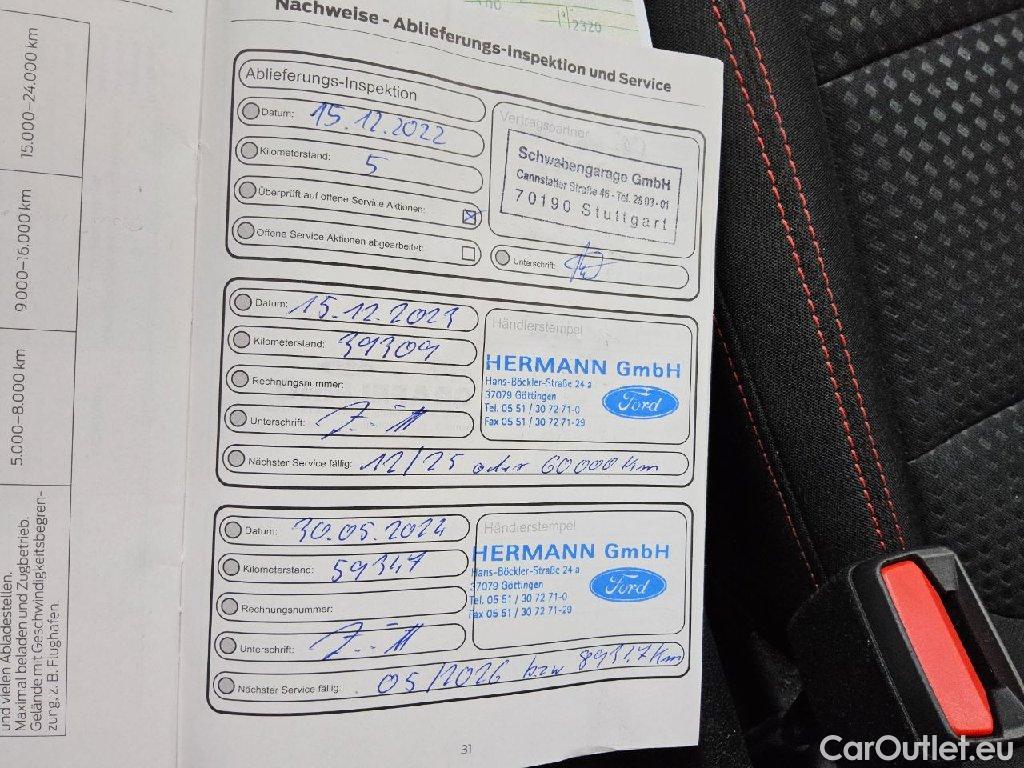 15.000–24.000 km
9.000–16.000 km
5.000–8.000 km
und vielen Abladestellen.
Maximal beladen und Zugbetrieb.
Gelände mit Geschwindigkeitsbegren-
zung, z. B. Flughäfen.
2320
Nachweise - Ablieferungs-Inspektion und Service
Ablieferungs-Inspektion
Datum: 15.12.2022
Kilometerstand: 5
Überprüft auf offene Service Aktionen:
Offene Service Aktionen abgearbeitet:
Vertragspartner
Schwabengarage GmbH
Cannstatter Straße 46 - Tel. 28 03-01
70190 Stuttgart
Unterschrift:
Datum: 15.12.2023
Kilometerstand: 39309
Rechnungsnummer:
Unterschrift:
Nächster Service fällig: 12/25 oder 60000 km
Händlerstempel
HERMANN GmbH
Hans-Böckler-Straße 24 a
37079 Göttingen
Tel. 05 51 / 30 72 71-0
Fax 05 51 / 30 72 71-29
Ford
Datum: 30.05.2024
Kilometerstand: 59347
Rechnungsnummer:
Unterschrift:
Nächster Service fällig: 05/2026 bzw 89347 km
Händlerstempel
HERMANN GmbH
Hans-Böckler-Straße 24 a
37079 Göttingen
Tel. 05 51 / 30 72 71-0
Fax 05 51 / 30 72 71-29
Ford
31
CarOutlet.eu